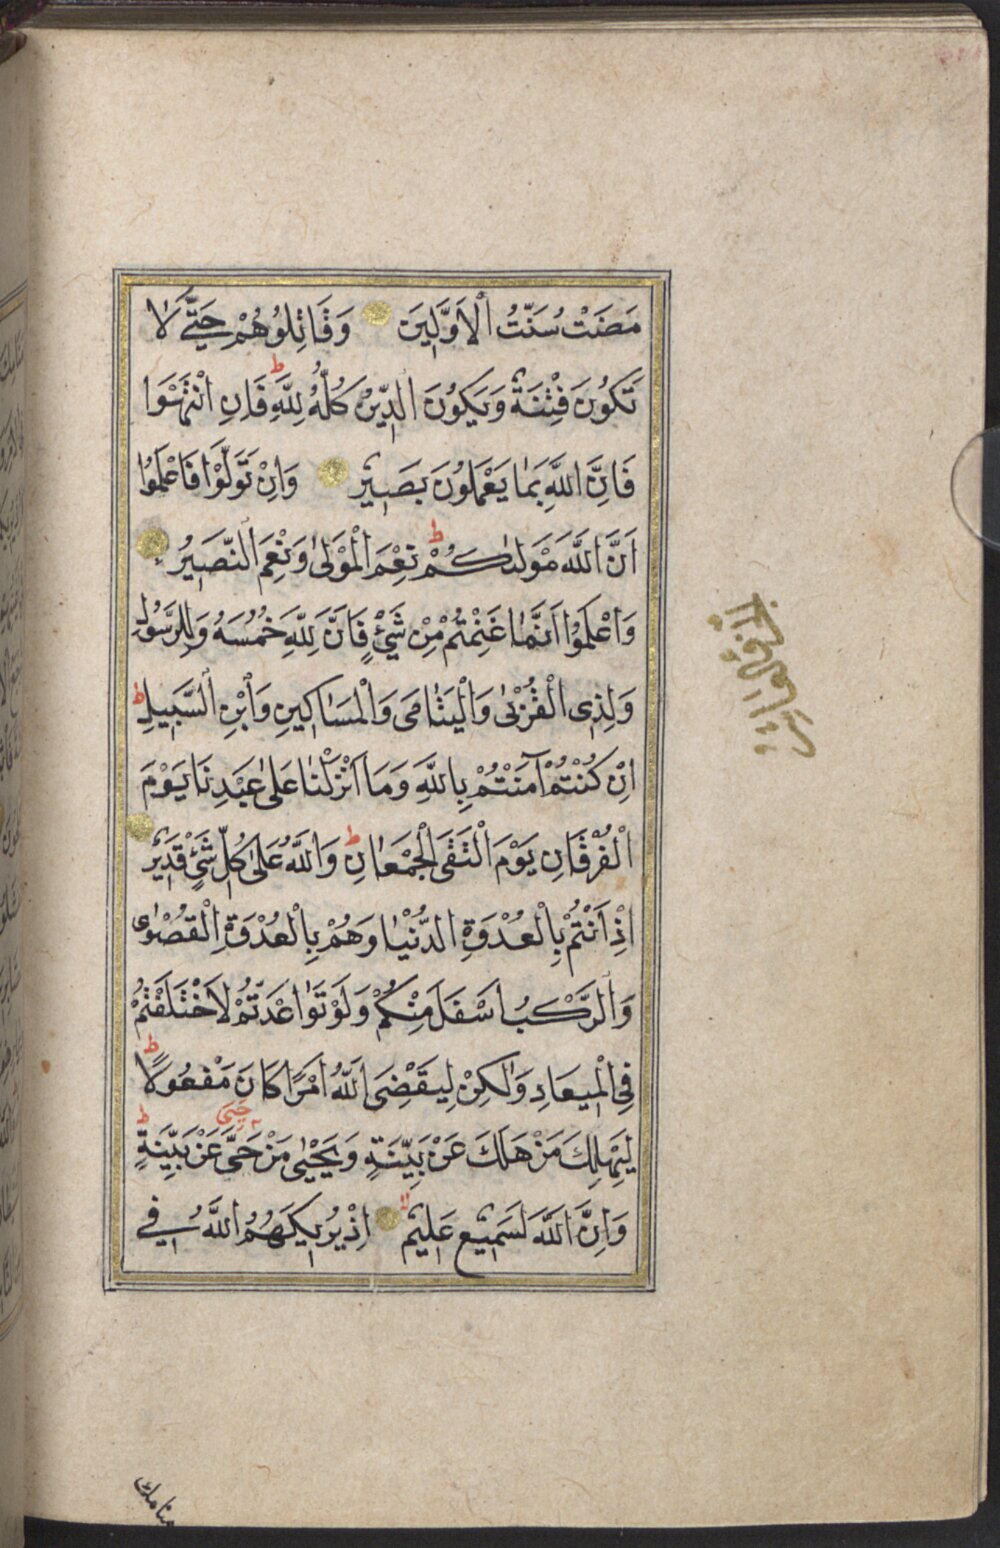 مَضَتْ سُنَّتُ الْاَوَّلِينَ وَقَاتِلُوهُمْ حَتّٰى لَا
تَكُونَ فِتْنَةٌ وَيَكُونَ الدِّينُ كُلُّهُ لِلّٰهِ ط فَاِنِ انْتَهَوْا
فَاِنَّ اللّٰهَ بِمَا يَعْمَلُونَ بَصِيرٌ وَاِنْ تَوَلَّوْا فَاعْلَمُوا
اَنَّ اللّٰهَ مَوْلٰيكُمْ ط نِعْمَ الْمَوْلٰى وَنِعْمَ النَّصِيرُ
وَاعْلَمُوا اَنَّمَا غَنِمْتُمْ مِنْ شَيْءٍ فَاَنَّ لِلّٰهِ خُمُسَهُ وَلِلرَّسُولِ
وَلِذِي الْقُرْبٰى وَالْيَتَامٰى وَالْمَسَاكِينِ وَابْنِ السَّبِيلِ ط
اِنْ كُنْتُمْ آمَنْتُمْ بِاللّٰهِ وَمَا اَنْزَلْنَا عَلٰى عَبْدِنَا يَوْمَ
الْفُرْقَانِ يَوْمَ الْتَقَى الْجَمْعَانِ ط وَاللّٰهُ عَلٰى كُلِّ شَيْءٍ قَدِيرٌ
اِذْ اَنْتُمْ بِالْعُدْوَةِ الدُّنْيَا وَهُمْ بِالْعُدْوَةِ الْقُصْوٰى
وَالرَّكْبُ اَسْفَلَ مِنْكُمْ وَلَوْ تَوَاعَدْتُمْ لَاخْتَلَفْتُمْ
فِي الْمِيعَادِ وَلٰكِنْ لِيَقْضِيَ اللّٰهُ اَمْرًا كَانَ مَفْعُولًا ط
لِيَهْلِكَ مَنْ هَلَكَ عَنْ بَيِّنَةٍ وَيَحْيٰى مَنْ حَيَّ عَنْ بَيِّنَةٍ ط
وَاِنَّ اللّٰهَ لَسَمِيعٌ عَلِيمٌ لا اِذْ يُرِيكَهُمُ اللّٰهُ فِي
منامك